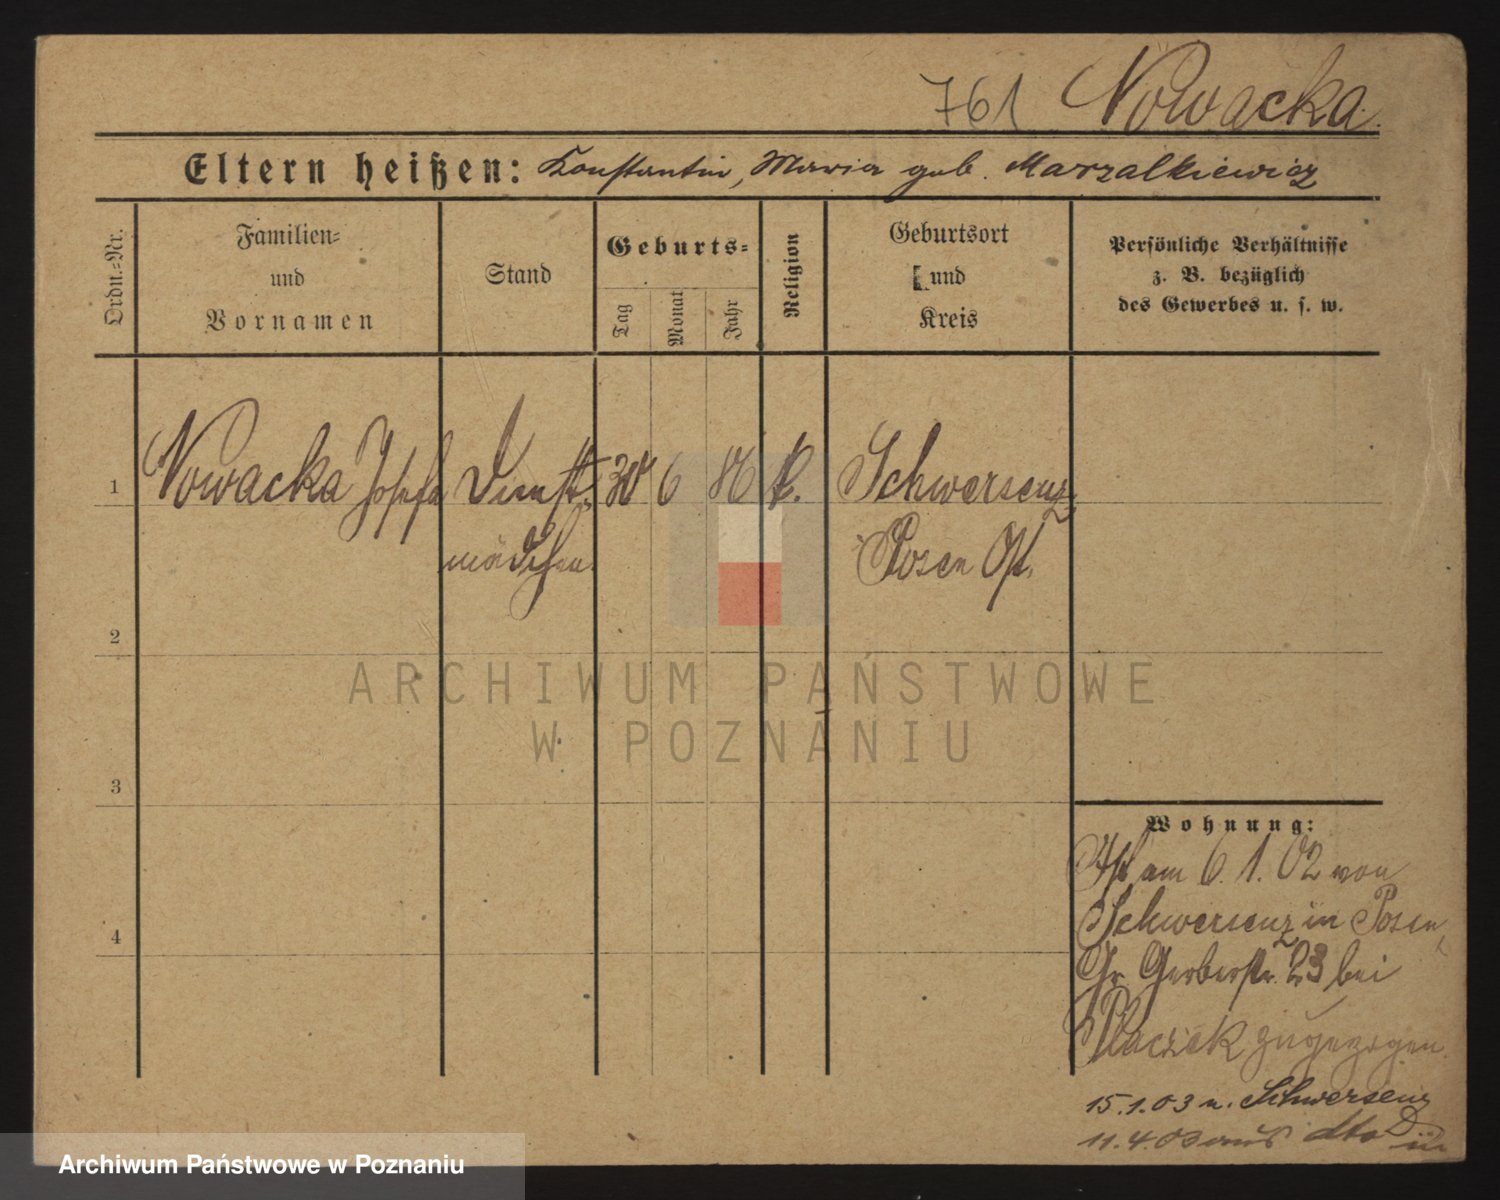 761 Nowacka.
Eltern heißen: Konstantin, Maria geb. Marzalkiewicz
Ordn.=Nr.
Familien=
und
Vornamen
Stand
Geburts=
Tag
Monat
Jahr
Religion
Geburtsort
und
Kreis
Persönliche Verhältnisse
z. B. bezüglich
des Gewerbes u. s. w.
1 Nowacka Josefa Dienst= 30 6 86 k. Schwersenz,
mädchen. Posen Ost.
2
3
4
Wohnung:
Ist am 6.1.02 von
Schwersenz in Posen,
Gr. Gerberstr. 23 bei
Placzek zugezogen.
15.1.03 n. Schwersenz
11.4.03 aus dto
ARCHIWUM PAŃSTWOWE
W POZNANIU
Archiwum Państwowe w Poznaniu